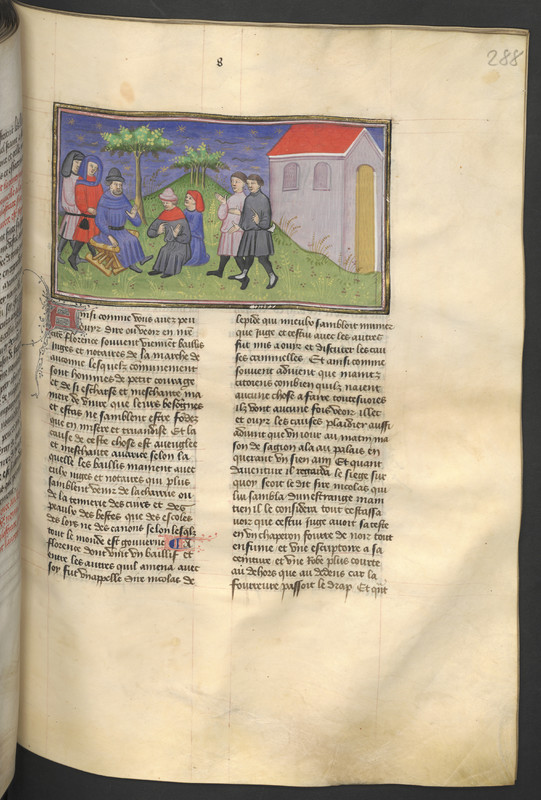 8
288
Ainsi comme vous avez peu
ouyr dire ou veoir en nre
cite florence souvent viennēt baillis
juges et notaires de la marche de
ancone lesquelz communement
sont hommes de petit courage
et de si escharse et meschante ma
niere de vivre que leurs besongnes
et estas ne semblent estre fondez
que en misere et truandise Et la
cause de ceste chose est aveuglee
et meschante avarice selon la
quelle les baillis mainent avec
eulx juges et notaires qui plus
semblent venir de la charrue ou
de la tennerie des cuirs et des
peaulx des bestes que des escoles
des lois ne des canons selon lesqlz
tout le monde est gouverne A
florence donc vint un baillif et
entre les autres quil amena avec
soy fut un appelle sire nicolas de
lepide qui mieulx sambloit
que juge et cestui avec les autres
fut mis a ouir et discuter les cau
ses criminelles Et ainsi comme
souvent advient que maintz
citoiens combien quilz naient
aucune chose a faire toutesvoies
ilz vont aucune fois veoir illec
et ouyr les causes plaidier aussi
advint que un jour au matin ma
son de sagion ala au palais en
querant un sien amy Et quant
daventure il regarda le siege sur
quoy seoit le dit sire nicolas qui
lui sambla dun estrange main
tien il le considera tout
voir que cestui juge avoit sa teste
en un chaperon fourre de noir tout
enfume et une escriptoire a sa
ceinture et une robe plus courte
au dehors que au dedens car la
fourreure passoit le drap Et qnt